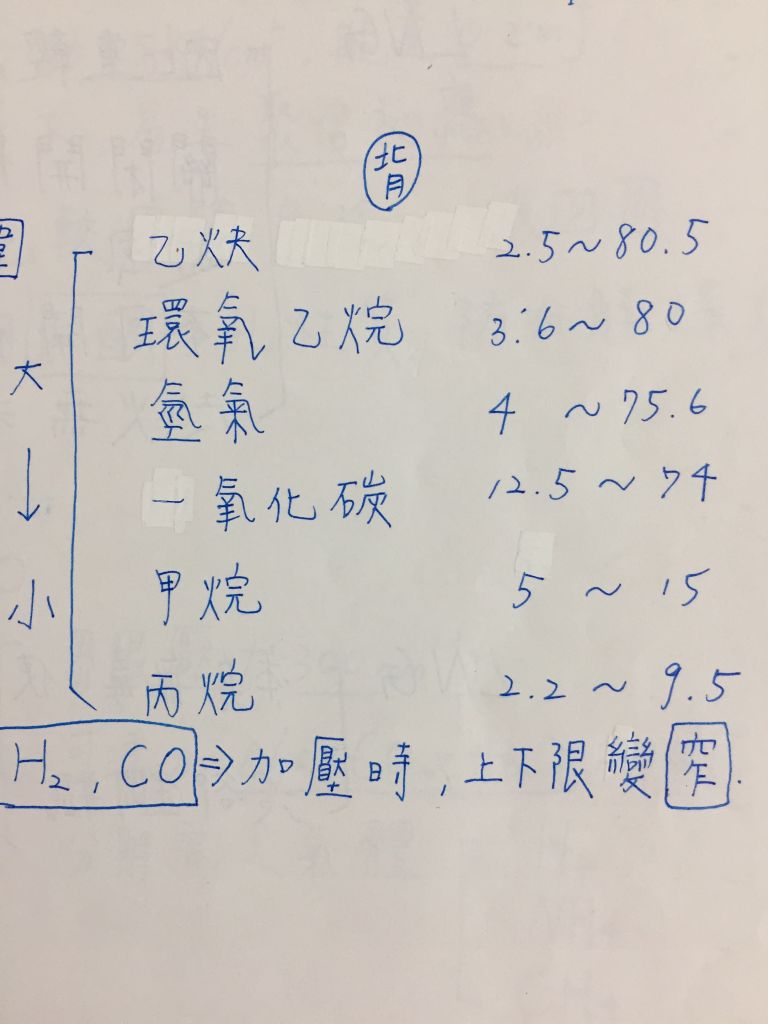 背
乙炔 2.5~80.5
環氧乙烷 3.6~80
大
氫氣 4 ~75.6
一氧化碳 12.5~74
↓
小
甲烷 5 ~ 15
丙烷 2.2~9.5
H₂, CO⇒加壓時,上下限變窄.